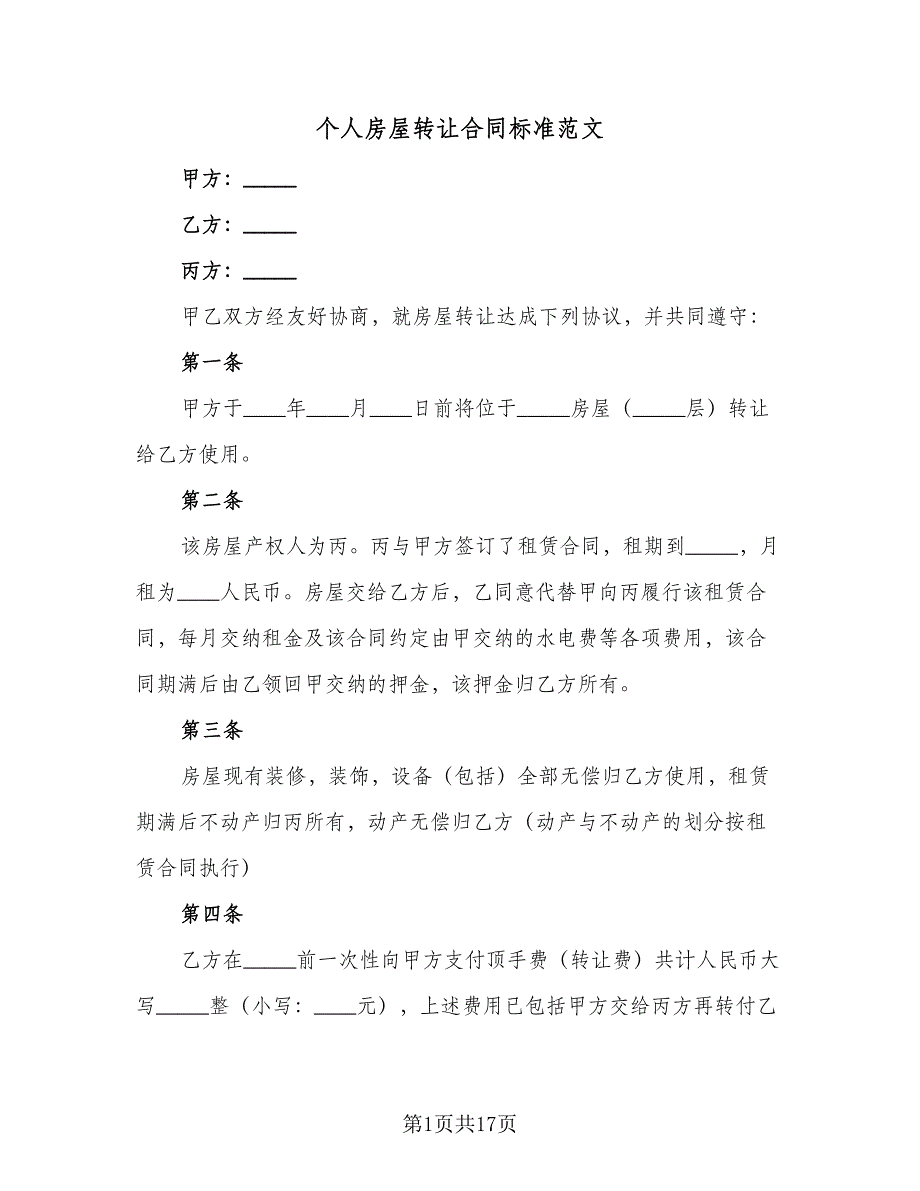 个人房屋转让合同标准范文
甲方：_____
乙方：_____
丙方：_____
甲乙双方经友好协商，就房屋转让达成下列协议，并共同遵守：
第一条
甲方于____年____月____日前将位于_____房屋（_____层）转让
给乙方使用。
第二条
该房屋产权人为丙。丙与甲方签订了租赁合同，租期到_____，月
租为____人民币。房屋交给乙方后，乙同意代替甲向丙履行该租赁合
同，每月交纳租金及该合同约定由甲交纳的水电费等各项费用，该合
同期满后由乙领回甲交纳的押金，该押金归乙方所有。
第三条
房屋现有装修，装饰，设备（包括）全部无偿归乙方使用，租赁
期满后不动产归丙所有，动产无偿归乙方（动产与不动产的划分按租
赁合同执行）
第四条
乙方在_____前一次性向甲方支付顶手费（转让费）共计人民币大
写_____整（小写：____元），上述费用已包括甲方交给丙方再转付乙
第1页共17页